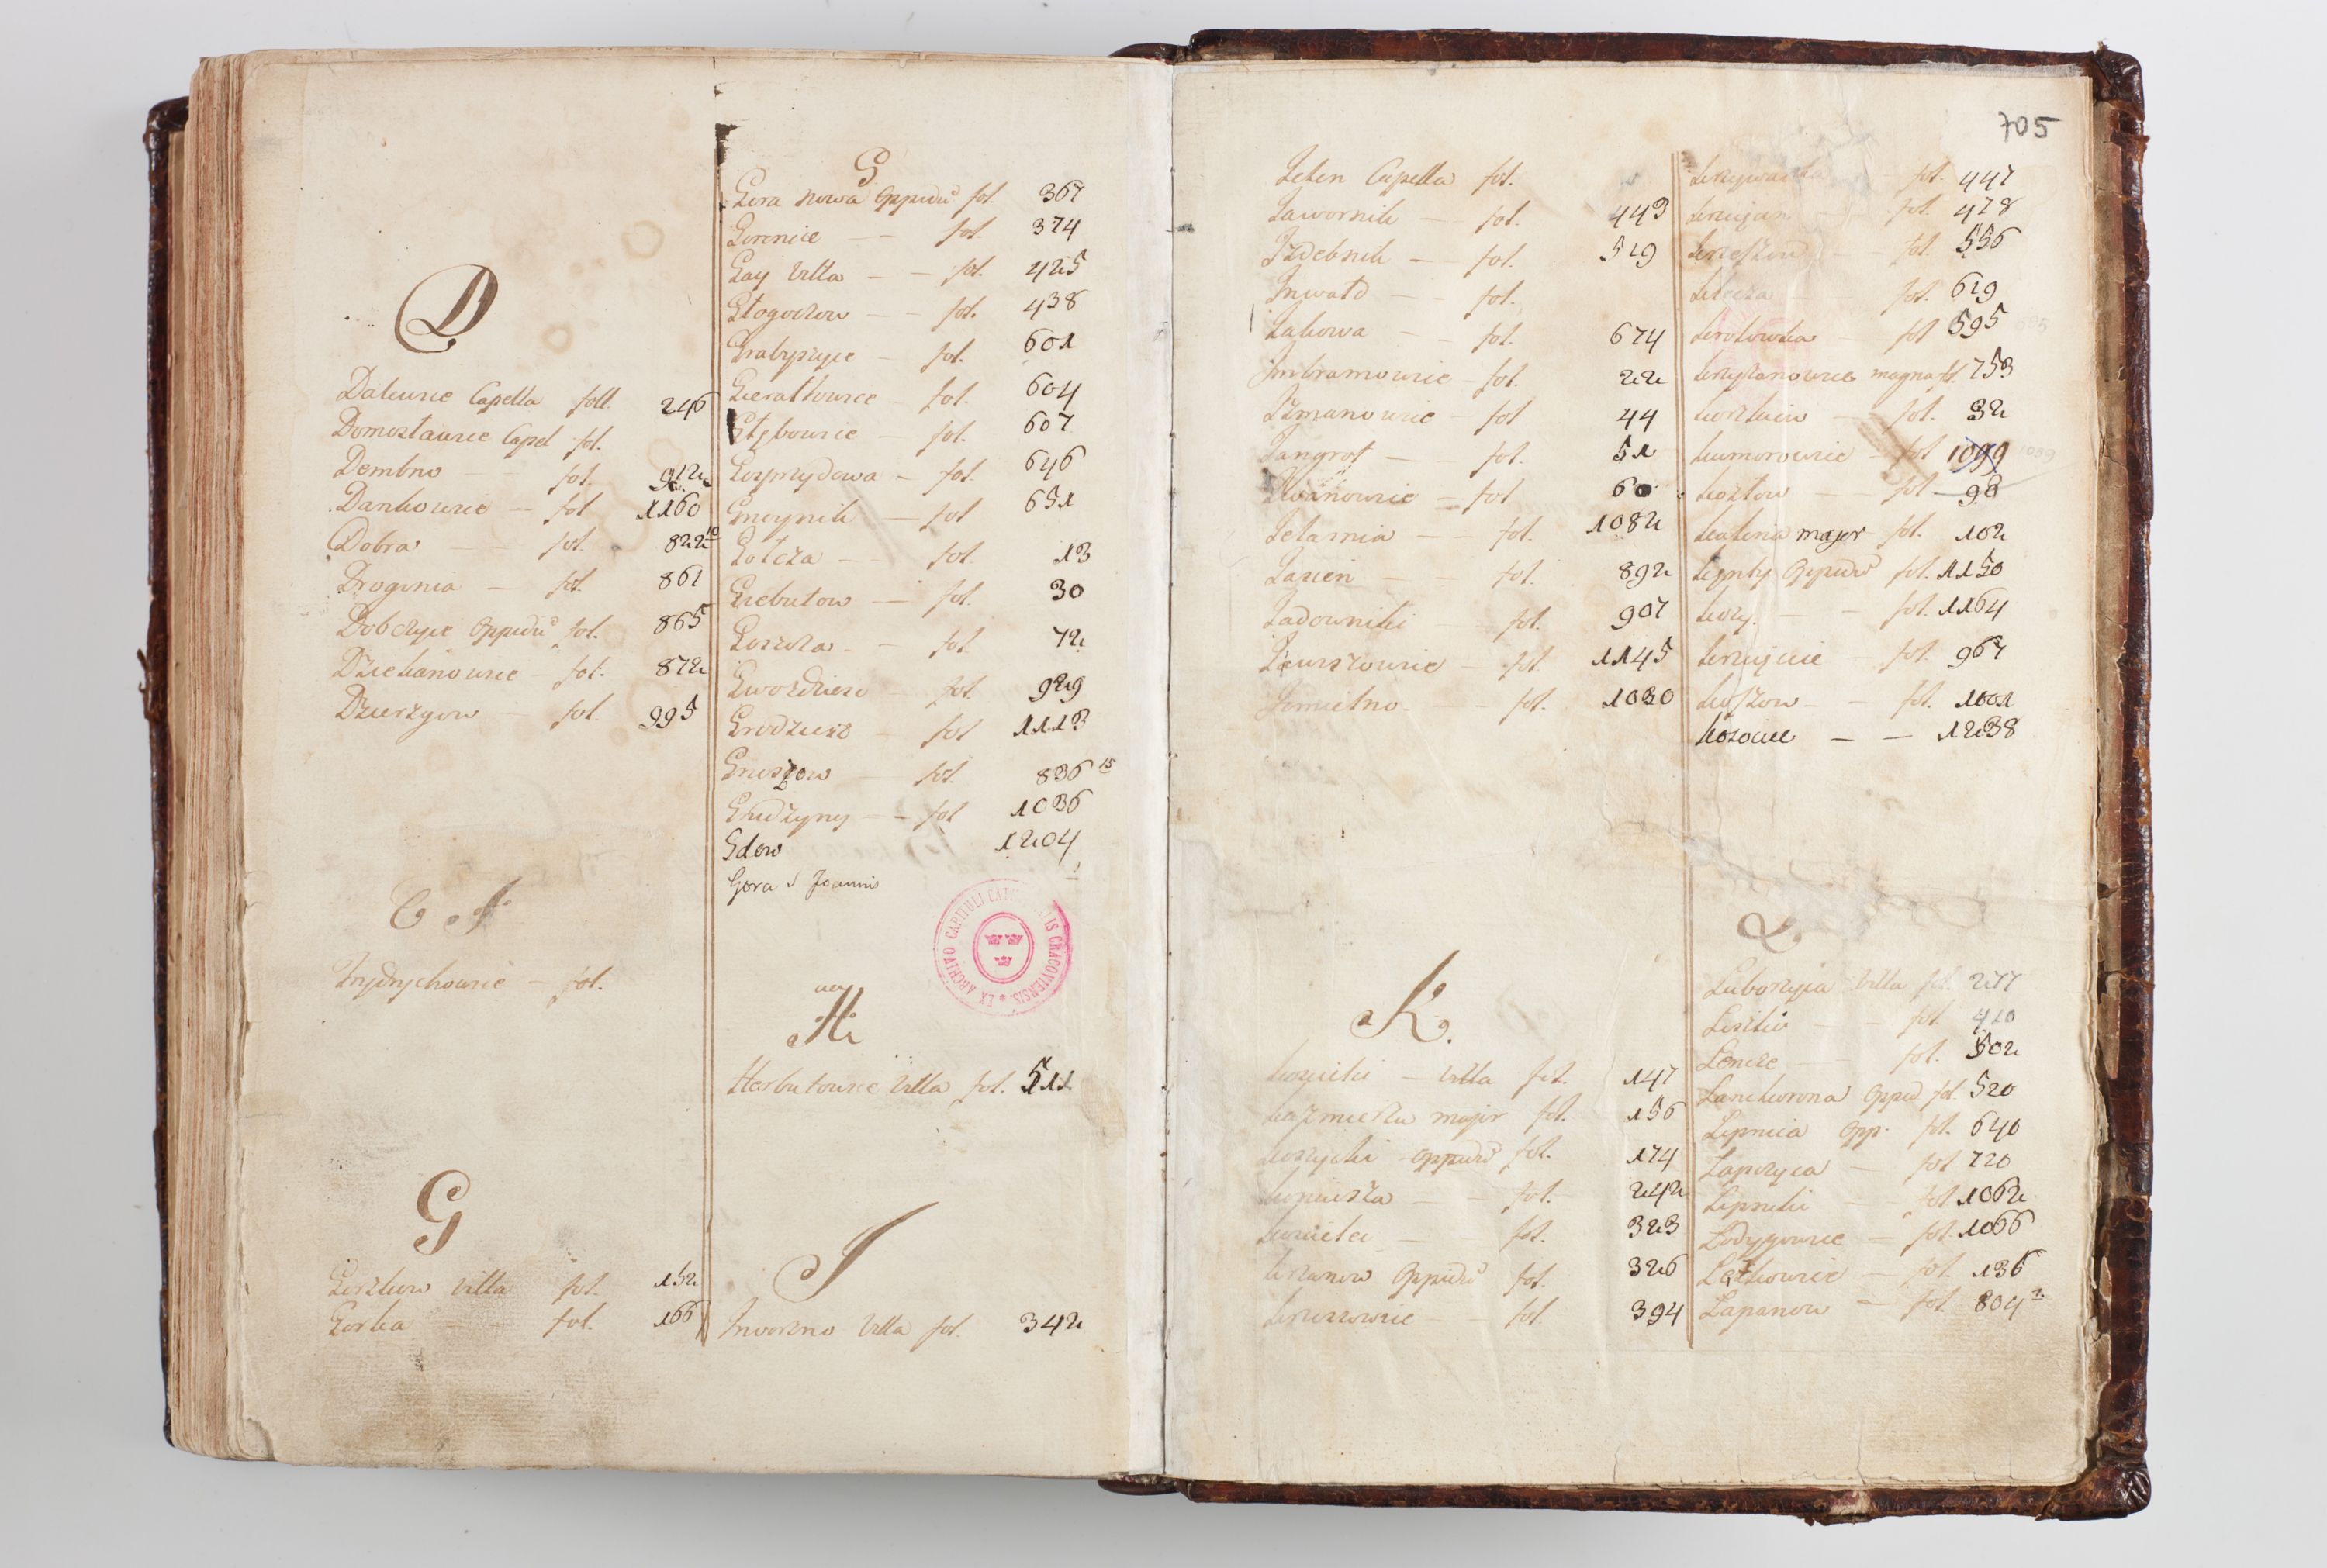 D
Dalewice Capella foll. 246
Domosławice Capel fol.
Dembno fol. 912
Dankowice fol 1160
Dobra fol. 822 10
Droginia fol. 861
Dobczyce Oppidũ fol. 865
Dziekanowice fol. 872
Dzierzgow fol 995
E F
Frydrychowice fol.
G
Goszkow Villa fol. 152
Gorka fol. 166
G
Gora Nowa Oppidũ fol. 367
Gorenice fol. 374
Gay Villa fol. 425
Głogoczow fol. 438
Graboszyce fol. 601
Gierałtowice fol. 604
Głębowice fol. 607
Gosprzydowa fol. 646
Gnoynik fol 651
Gołcza fol. 13
Grebutow fol. 30
Goszcza fol 72
Gwozdziec fol. 929
Grodziec fol 1113
Gruszow fol. 836 15
Gludzyny fol 1036
Gdow 1204
Gora S Joannis 1
EX ARCHIVO CAPITULI CRACOVIENSIS
H
Harbutowice Villa fol. 511
J
Jaworzno Villa fol. 342
705
Jelen Capella fol.
Jawornik fol. 443
Izdebnik fol. 519
Inwałd fol.
Jakowa fol. 674
Imbramowice fol. 22
Izmanowice fol 44
Jangrot fol. 51
Iwanowice fol 60
Jelasnia fol. 1082
Jasień fol. 892
Jadowniki fol. 907
Jawiszowice fol. 1145
Jemielno fol. 1030
K.
Koscielec Villa fol. 147
Kazmierza major fol. 156
Koszycki Oppidũ fol. 174
Koniusza fol. 242
Koscielec fol. 323
Krzanow Oppidũ fol. 326
Krzeszowice fol. 394
Krzywaczka fol. 447
fol. 478
fol. 556
Klecza fol. 619
Krotowka fol 595
Krzyzanowice magna fol. 753
Korzkiew fol. 32
Komorowice fol 1099
Kozłow fol 98
Kalina major fol. 102
Kęnty Oppidũ fol. 1150
Kozy fol. 1164
Krzęcice fol. 967
Kossow fol. 1001
Kozowce 1238
L
Luborzyca Villa fol. 277
Leszki fol 410
Lencze fol. 502
Lanckorona Oppid fol. 520
Lipnica Opp. fol. 640
Łapczyca fol 720
Lipniki fol 1062
Łodygowice fol. 1066
Łętkowice fol. 136
Łapanow fol. 804 2